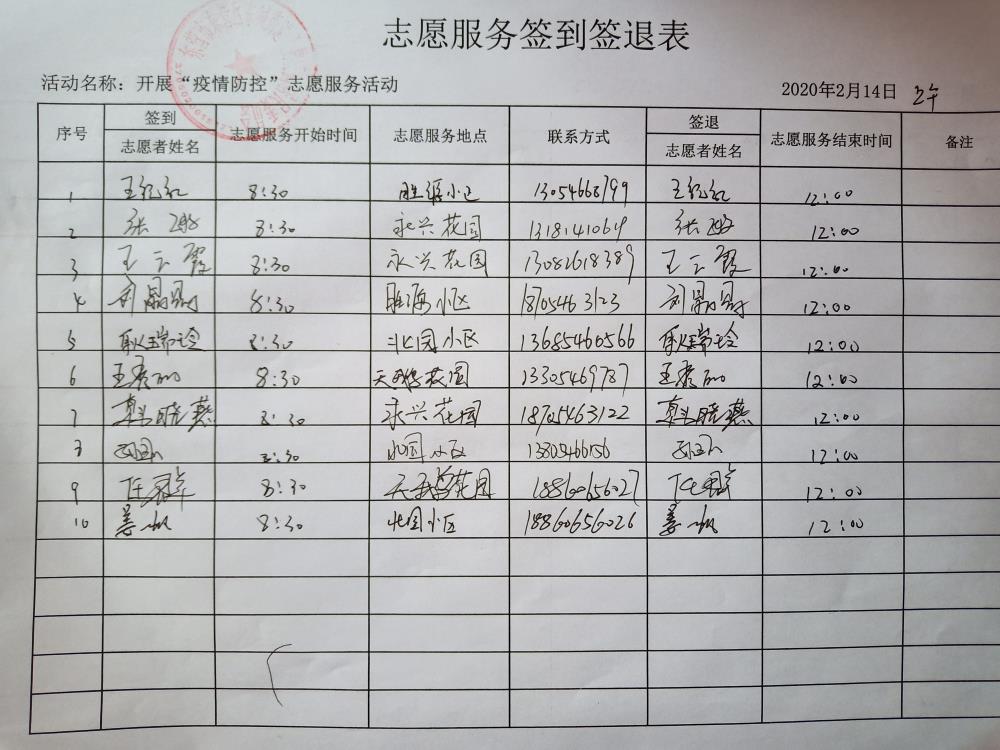 志愿服务签到签退表
活动名称：开展“疫情防控”志愿服务活动 2020年2月14日
序号 签到 志愿服务开始时间 志愿服务地点 联系方式 签退 志愿服务结束时间 备注
志愿者姓名 志愿者姓名
1 8:30 胜源小区 13054668799 12:00
2 张 8:30 永兴花园 1318141069 张 12:00
3 王云霞 8:30 永兴花园 13082618389 王云霞 12:00
4 刘晶晶 8:30 胜源小区 18705463123 刘晶晶 12:00
5 耿瑞玲 8:30 北园小区 13685460566 耿瑞玲 12:00
6 8:30 花园 13305469787 12:00
7 晓燕 8:30 永兴花园 18705463122 晓燕 12:00
8 8:30 北园小区 13805466156 12:00
9 任 8:30 花园 18860656027 任 12:00
10 姜帆 8:30 北园小区 18860656026 姜帆 12:00